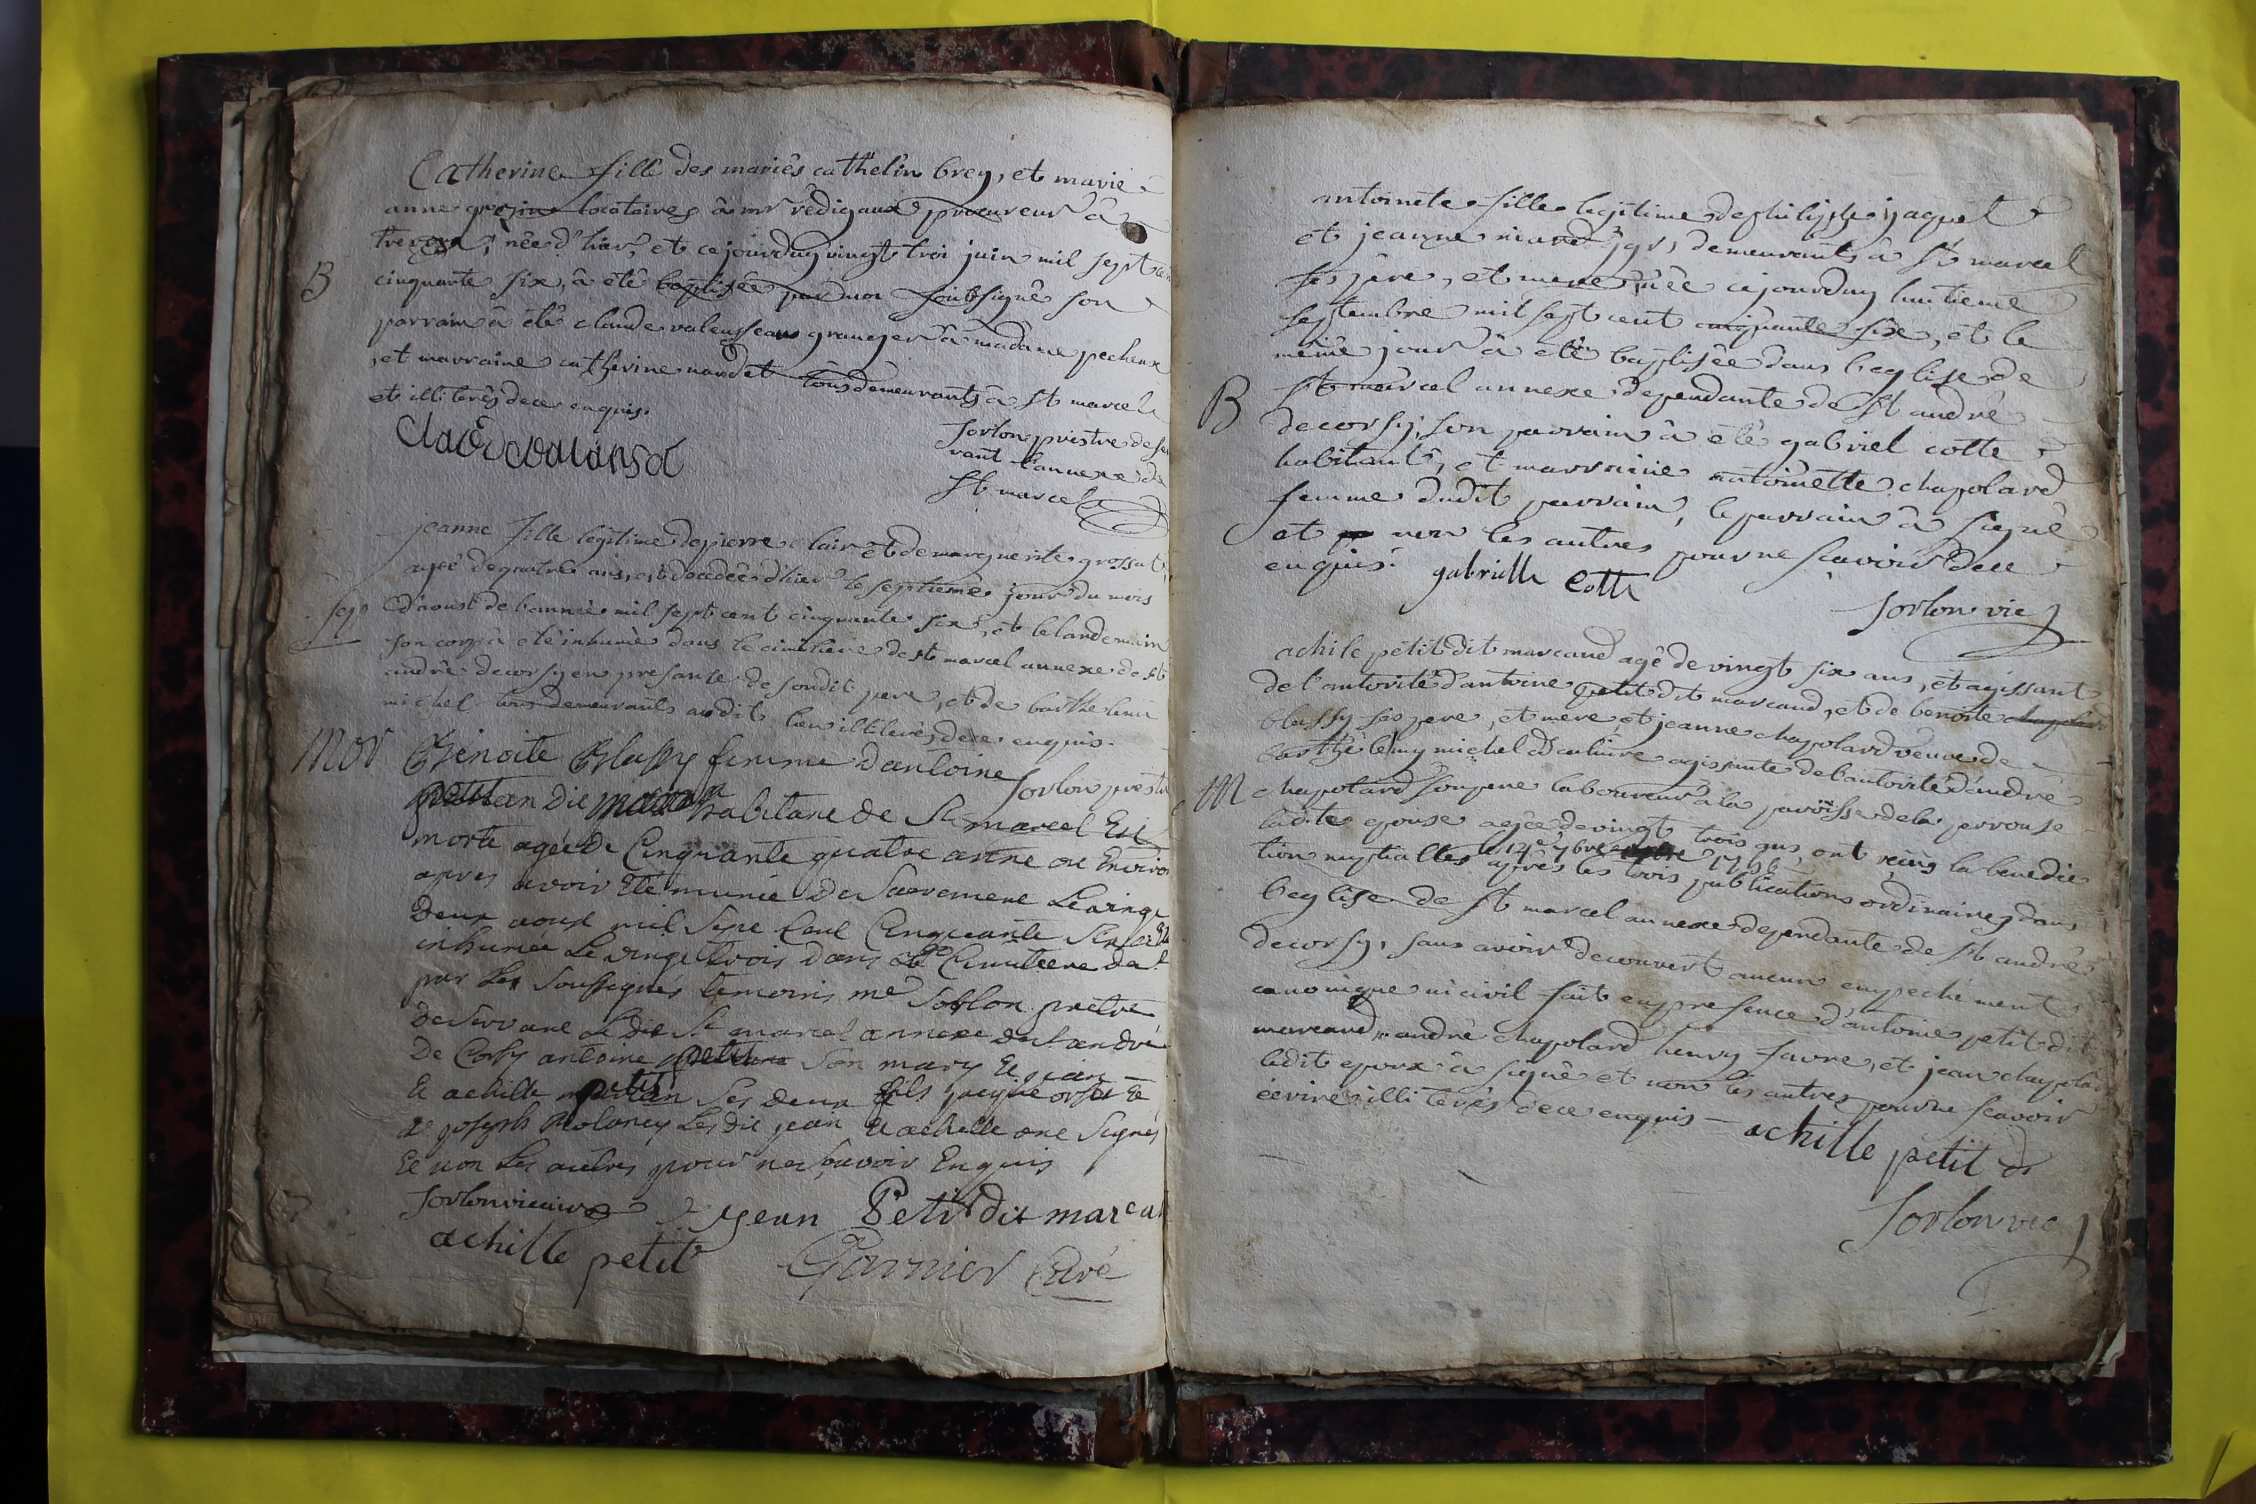 Catherine fille des mariés cathelin brey, et marie
anne locataires à mr rédigaux procureur à
née d'hier, et cejourduy vingt troi juin mil sept cen
B
cinquante six, à été baptisée par moi soubsigné son
parrain à été claude valensseaus granger à madame pecheux
, et marraine catherine nardet tous demeurants à st marcel
et illiterés de ce enquis.
Sorlon priestre desser
vant l'annexe de
st marcel
jeanne fille legitime de pierre clair et de marguerite grossat,
agée de quatre ans, est decedée d'hier le septieme jour du mois
sep
d'aoust de l'année mil sept cent cinquante six, et le landemain
son corp à été inhumé dans le cimetière de st marcel annexe de st
andré decorsy en presante de sondit pere, et de barthelemi
michel tous demeurants audit lieu illiterés de ce enquis.
Sorlon prestre
Mor
Benoite Blassy femme dantoine
petit dit habitant de St marcel Est
morte agée de Cinquante quatre anne ou Environ
apres avoir Eté munie de Sacrement Le vingt
deux aout mil Sept Cent Cinquante Six
inhumée Le vingt trois dans le Cimitiere
par Les Soussignés temoins me Sorlon prêtre
deServant Le dit St marcel annexe de St andré
De Corsy antoine son mary Et jean
Et achille petit Ses deux fils
et joseph Les dit jean Et achille ont Signés
Et non Les autres pour ne Savoir Enquis
Sorlon vicaire
jean Petit dit marcau
achille petit
Garnier Curé
antoinete fille legitime de philippe jaquet
et jeanne marie , demeurants à st marcel
ses père, et mere, née cejourduy huitieme
septembre mil sept cent cinquante six, et le
même jour à été baptisée dans l'eglise de
B
st marcel annexe dependante de st andré
decorsy, son parrain à été gabriel cotte
habitant, et marraine antoinette chapolard
femme dudit parrain, le parrain à signé
et non les autres pour ne scavoir de ce
enquis.
gabrielle Cotte
Sorlon vic
achile petit dit marcand agé de vingt six ans, et agissant
de l'autorité d'antoine petit dit marcand, et de benoite
blassy ses pere, et mere et jeanne chapolard veuve de
barthelemy michel agissante de l'autorité d'andré
M
chapolard son pere laboureur à la paroisse de la perrouse
ladite epouse agée de vingt trois ans, ont reçus la benedic
le 14e 7bre 1756
tion nuptialles après les trois publications ordinaires dans
l'eglise de st marcel annexe dependante de st andré
decorsy, sans avoir decouvert aucun empechement
canonique ni civil fait en presence d'antoine petit dit
marcand, andré chapolard henry favre, et jean chapolard
ledit epoux à signé et non les autres pour ne scavoir
écrire illiterés de ce enquis
achille petit di
Sorlon vic